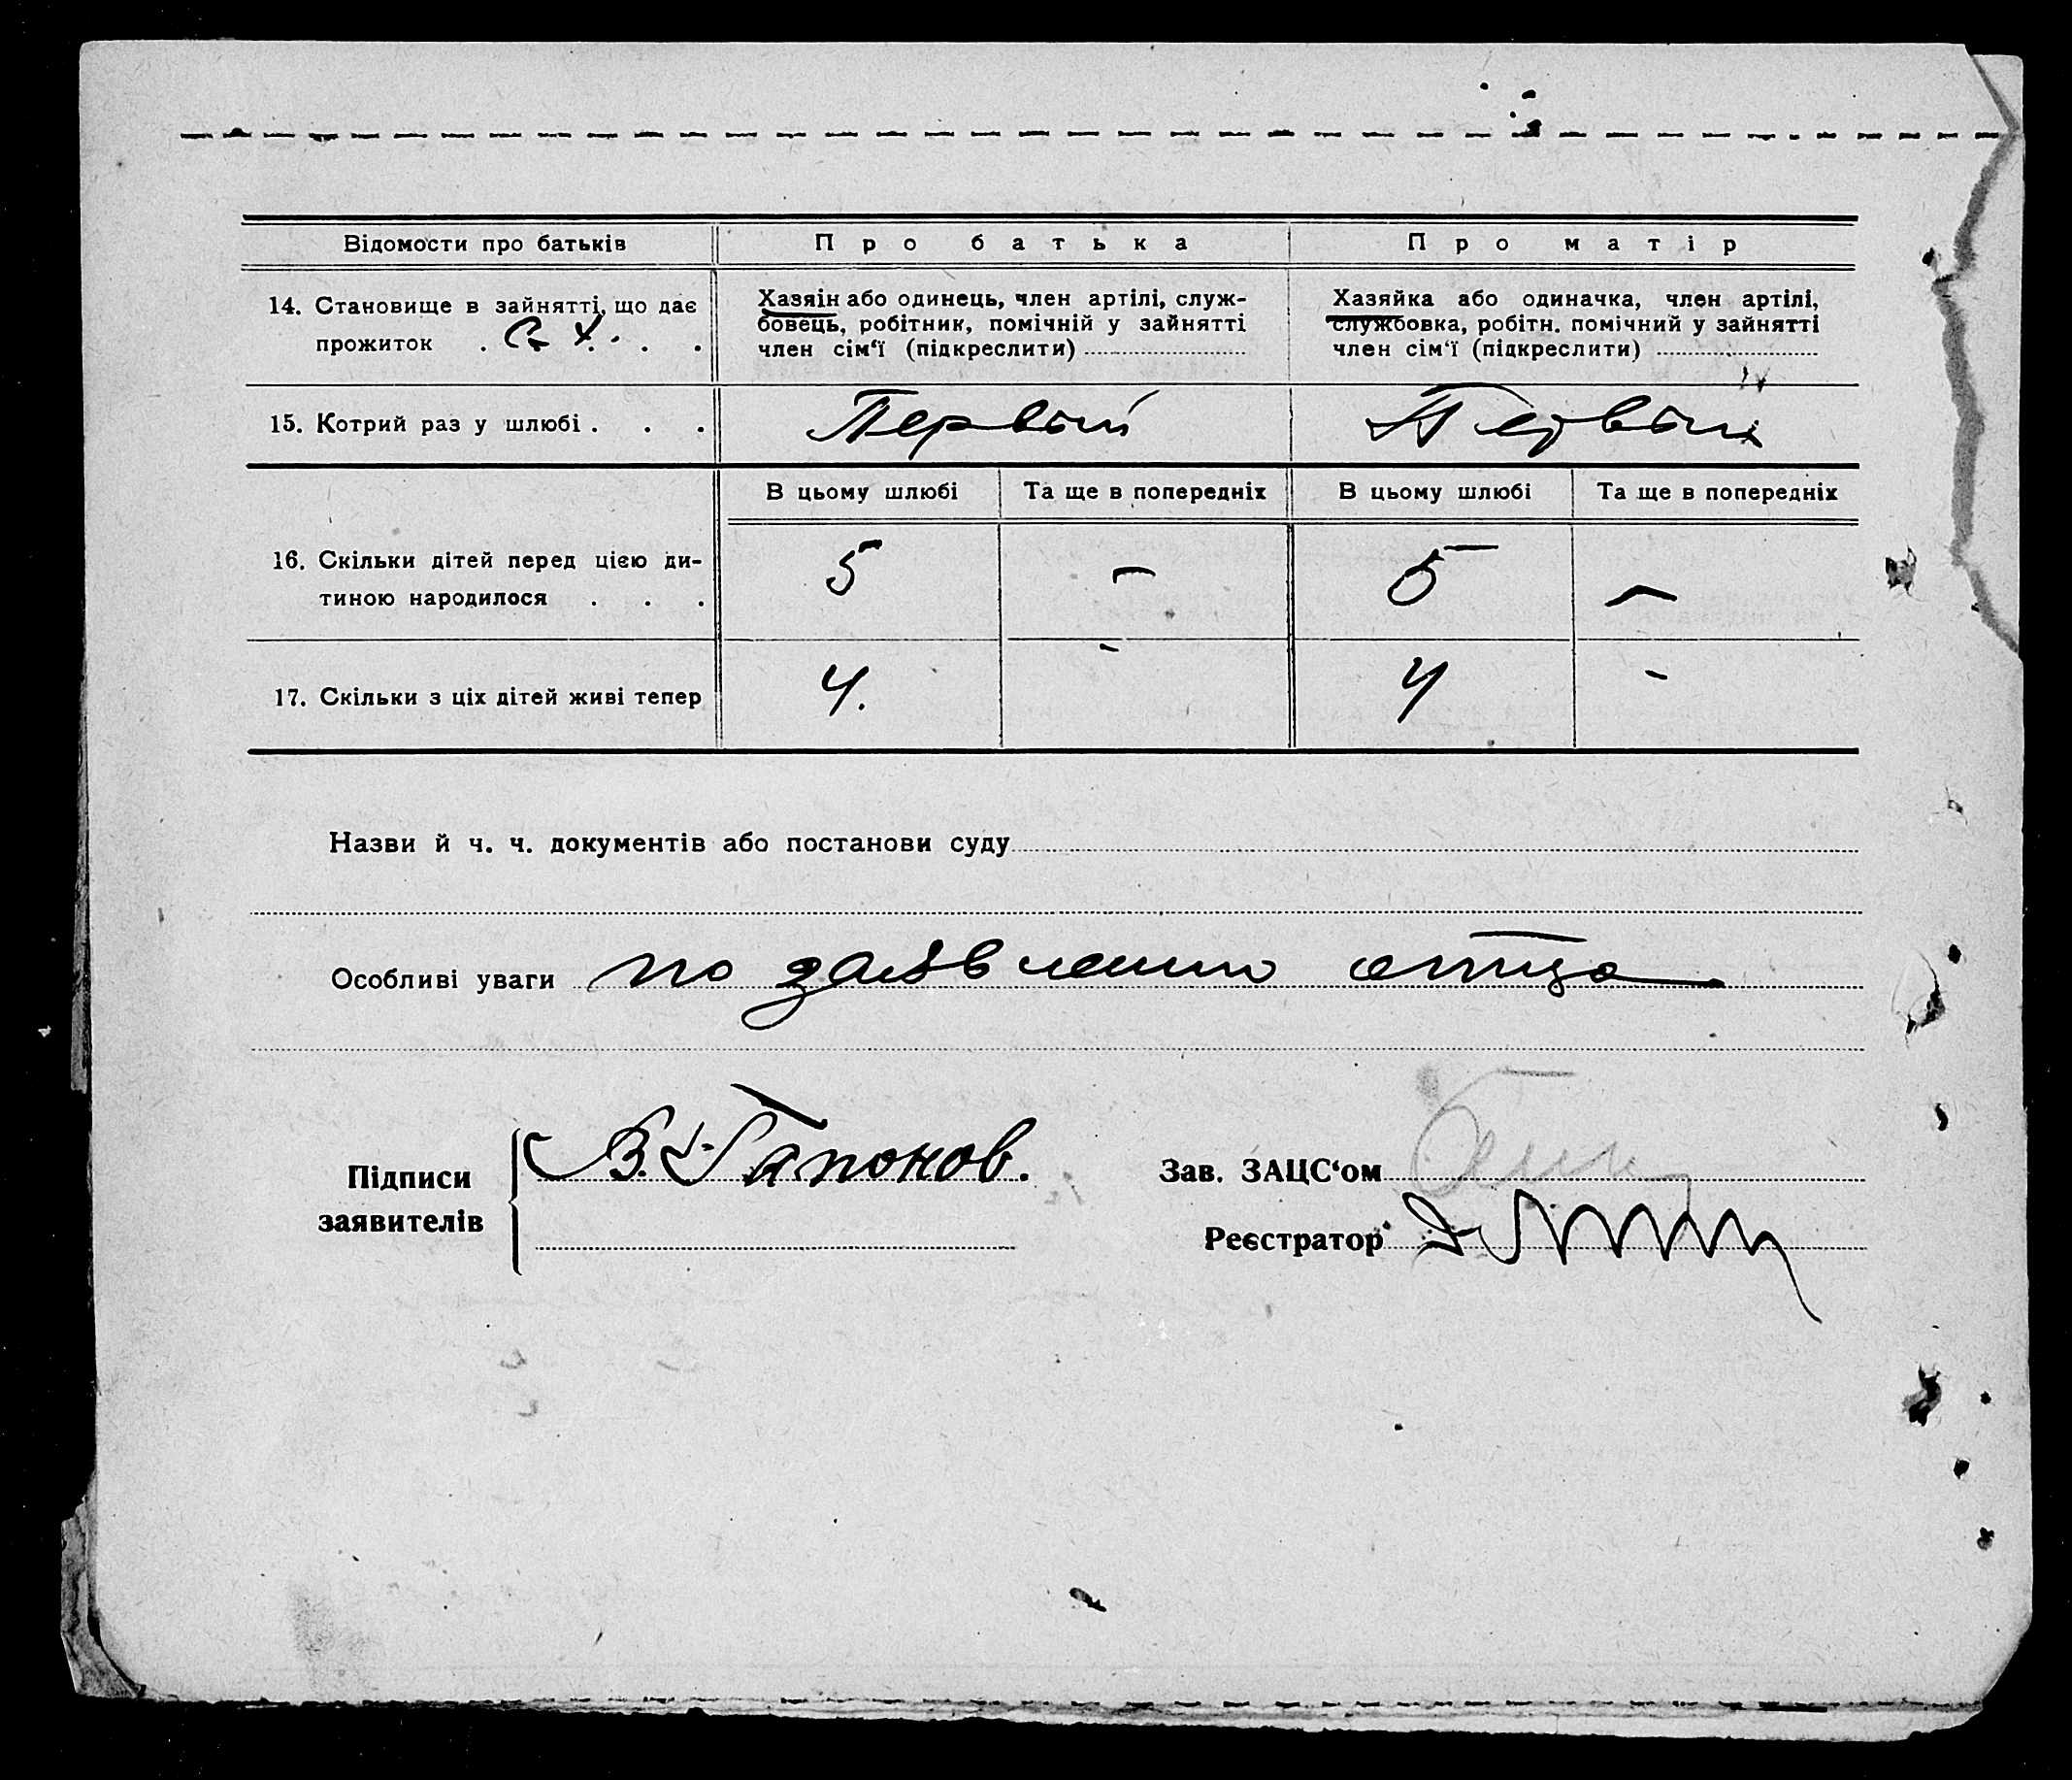 Відомости про батьків Про батька Про матір
14. Становище в зайнятті, що дає
прожиток . С. Х. . .
Хазяін або одинець, член артілі, служ-
бовець, робітник, помічній у зайнятті
член сім‘ї (підкреслити)
Хазяйка або одиначка, член артілі,
службовка, робітн. помічний у зайнятті
член сім‘ї (підкреслити)
15. Котрий раз у шлюбі . . . Первый Первый
В цьому шлюбі Та ще в попередніх В цьому шлюбі Та ще в попередніх
16. Скільки дітей перед цією ди-
тиною народилося . . .
5 – 5 –
17. Скільки з ціх дітей живі тепер 4. - 4 -
Назви й ч. ч. документів або постанови суду
Особливі уваги по заявлению отца
Підписи
заявителів
В. Гапонов.
Зав. ЗАЦС‘ом
Реєстратор